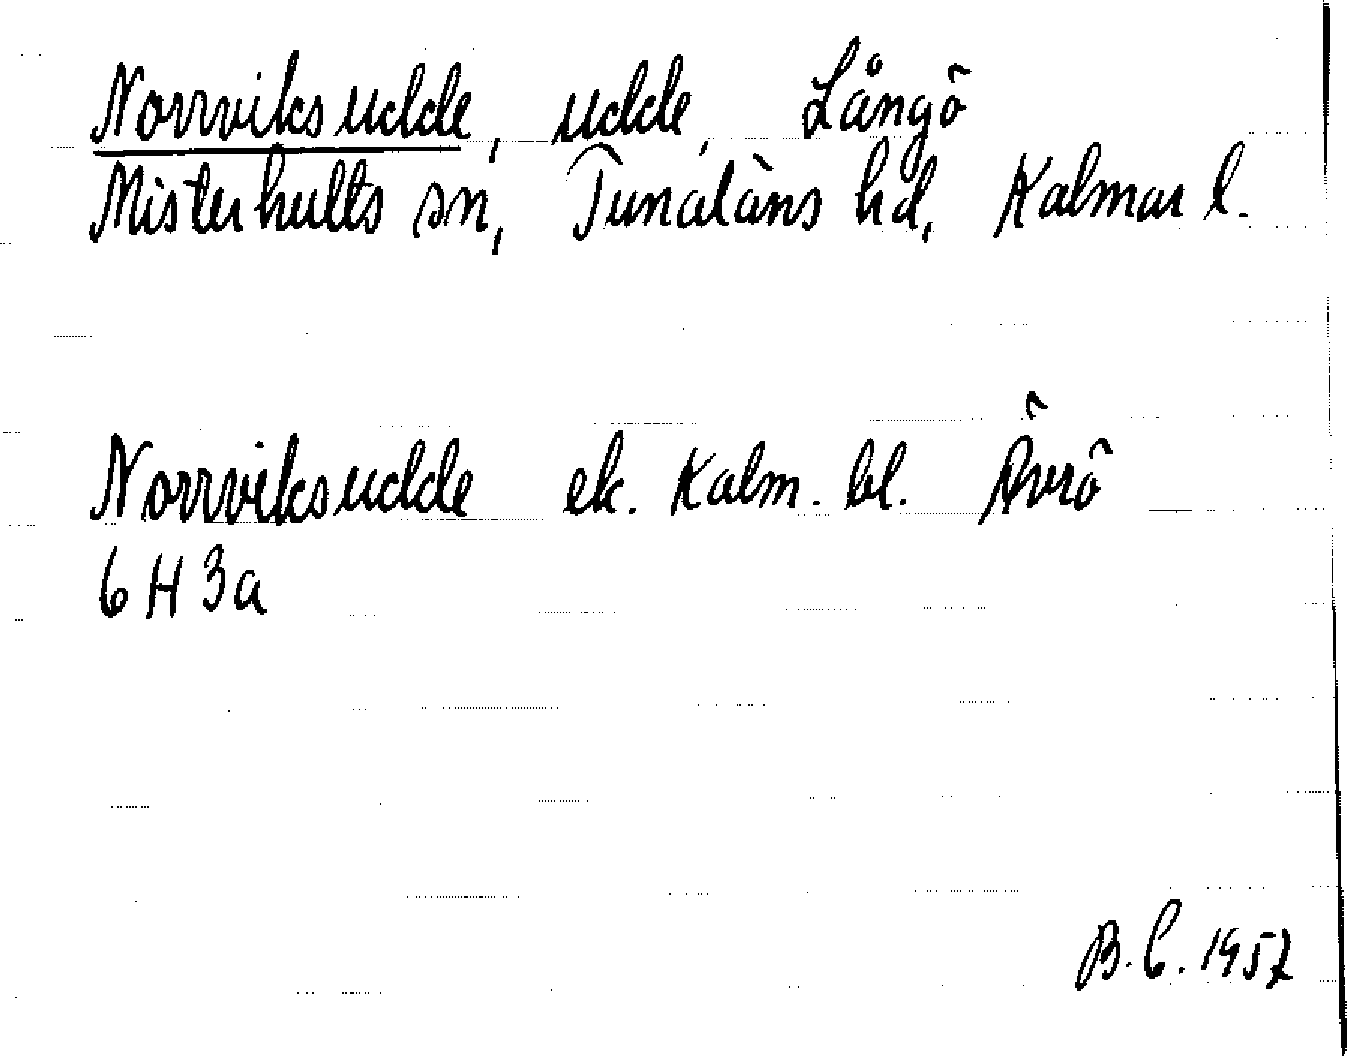 Norrviksudde, udde, Långö
Misterhults sn, Tunaläns hd, Kalmar l.
Norrviksudde ek. Kalm. bl. Ävrö
6 H 3a
B.C. 1957